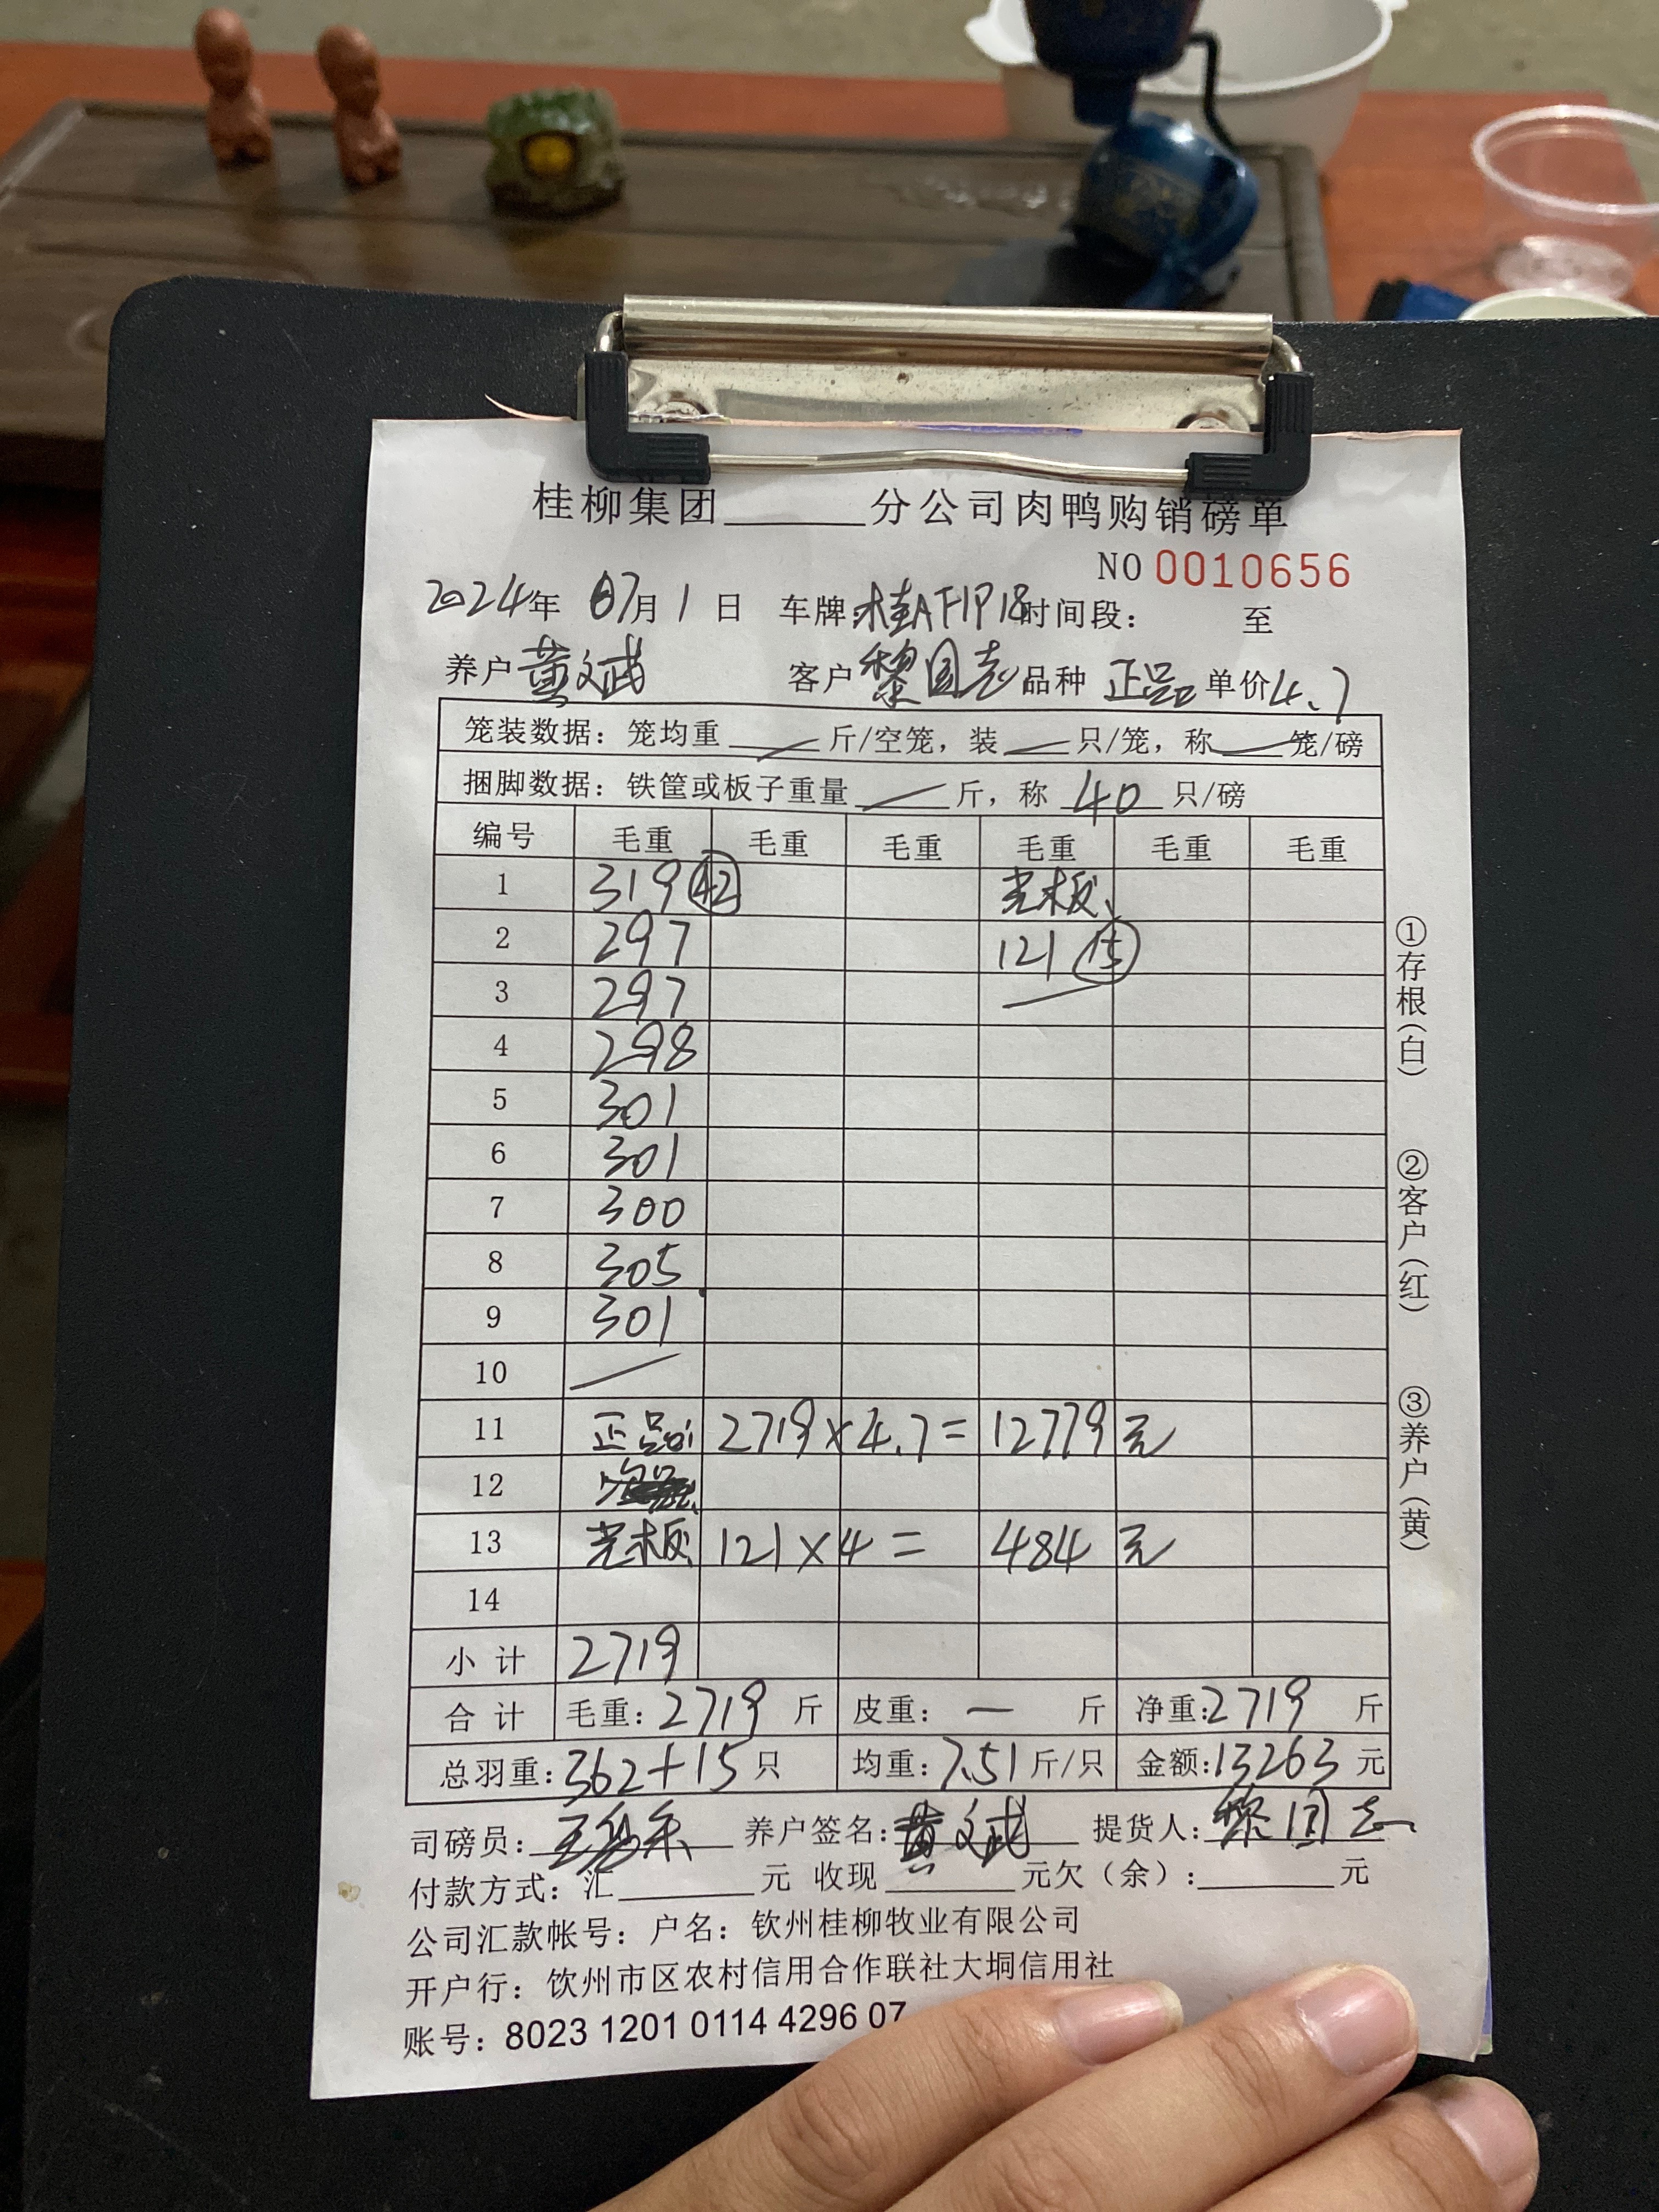 桂柳集团______分公司肉鸭购销磅单
NO 0010656
2024年 07月 1 日 车牌:桂AF1P18 时间段: 至
养户 黄文武 客户 黎国志 品种 正品 单价 4.7
笼装数据: 笼均重 ／ 斤/空笼, 装 ／ 只/笼, 称 ／ 笼/磅
捆脚数据: 铁筐或板子重量 ／ 斤, 称 40 只/磅
编号 毛重 毛重 毛重 毛重 毛重 毛重
1 319 ㊷ 光板
2 297 121 ⑮
3 297 ／
4 298
5 301
6 301
7 300
8 305
9 301
10 ／
11 正品: 2719×4.7= 12779 元
12
13 光板 121×4= 484 元
14
小计 2719
合计 毛重: 2719 斤 皮重: — 斤 净重: 2719 斤
总羽重: 362+15 只 均重: 7.51 斤/只 金额: 13263 元
司磅员: 养户签名: 黄文武 提货人: 黎国志
付款方式: 汇______元 收现______元欠(余):______元
公司汇款帐号: 户名: 钦州桂柳牧业有限公司
开户行: 钦州市区农村信用合作联社大垌信用社
账号: 8023 1201 0114 4296 07
①存根(白)
②客户(红)
③养户(黄)